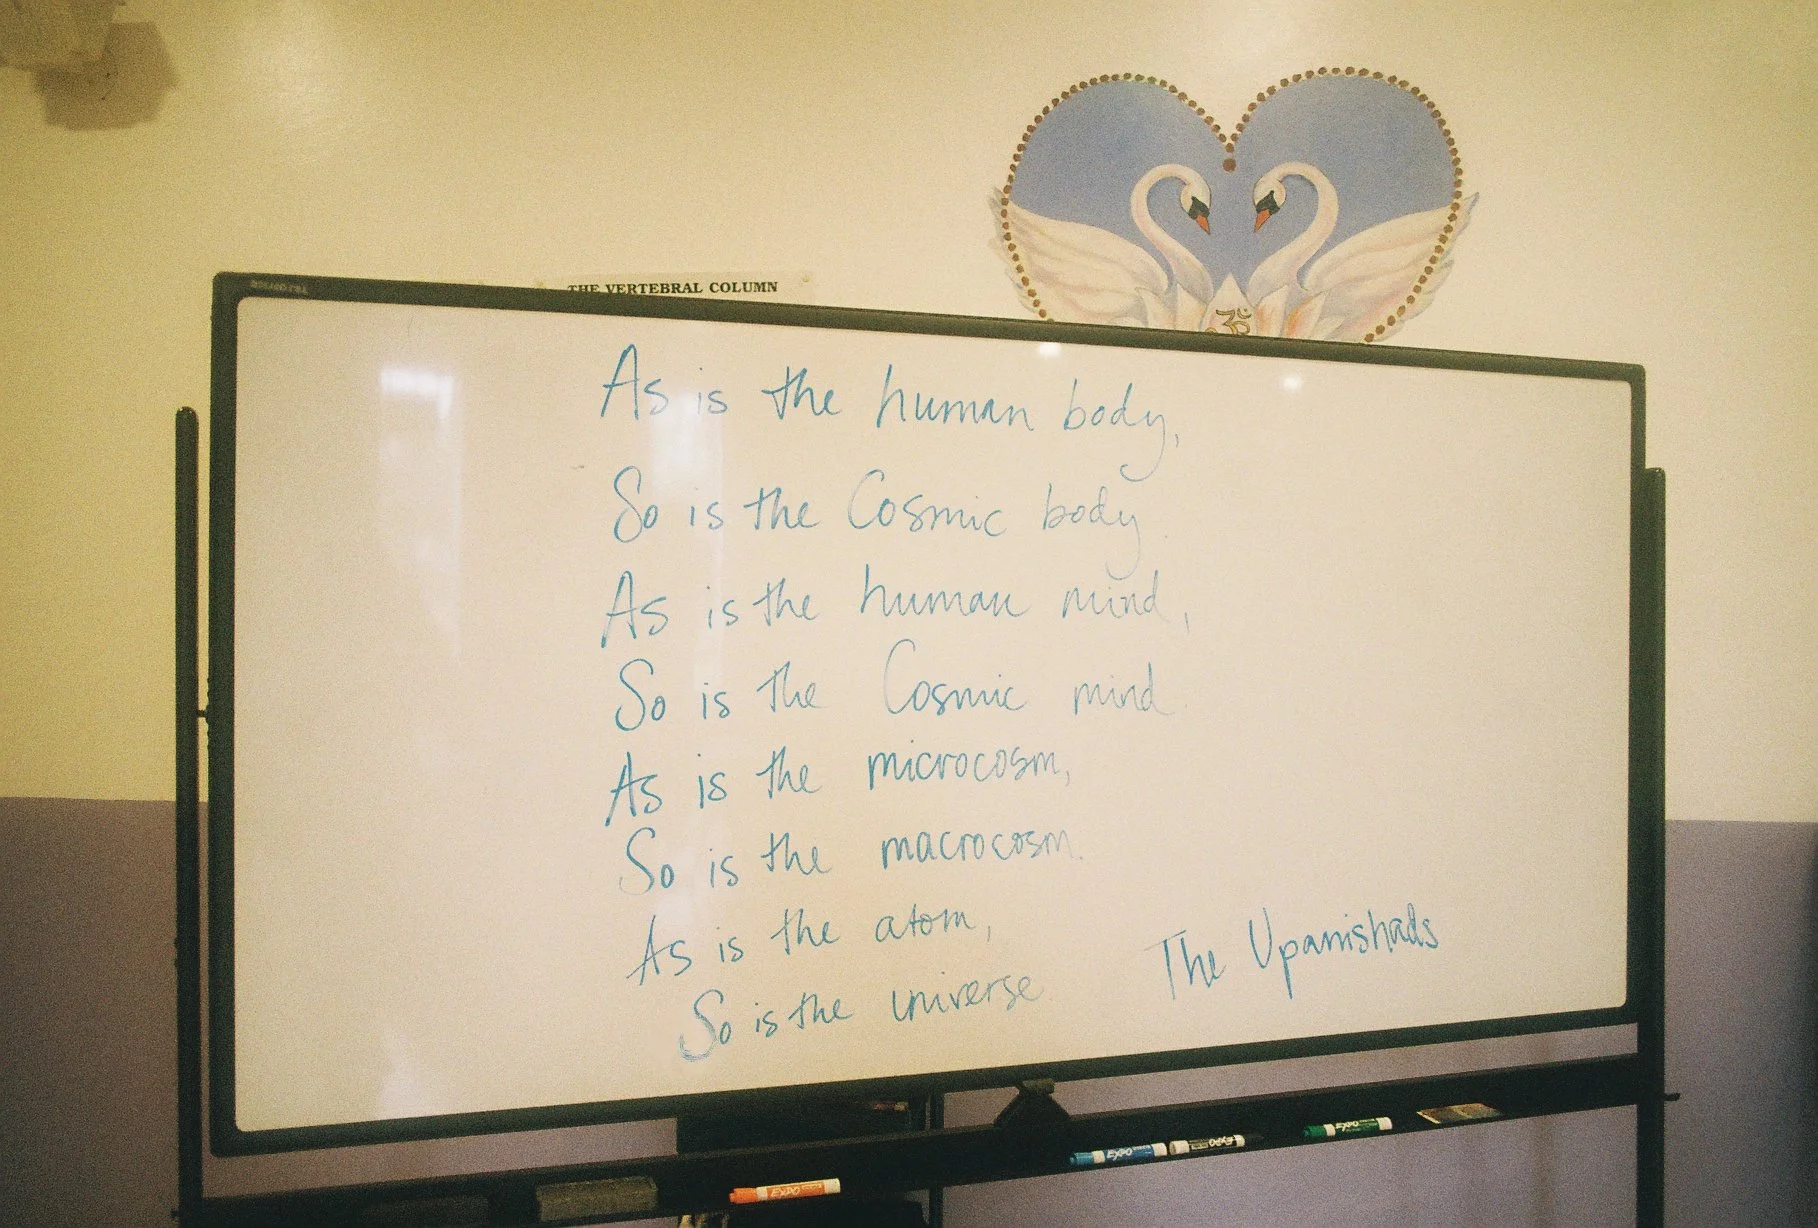 THE VERTEBRAL COLUMN
ॐ
As is the human body,
So is the Cosmic body.
As is the human mind,
So is the Cosmic mind.
As is the microcosm,
So is the macrocosm.
As is the atom,
So is the universe.
The Upanishads
EXPO
EXPO
EXPO
EXPO